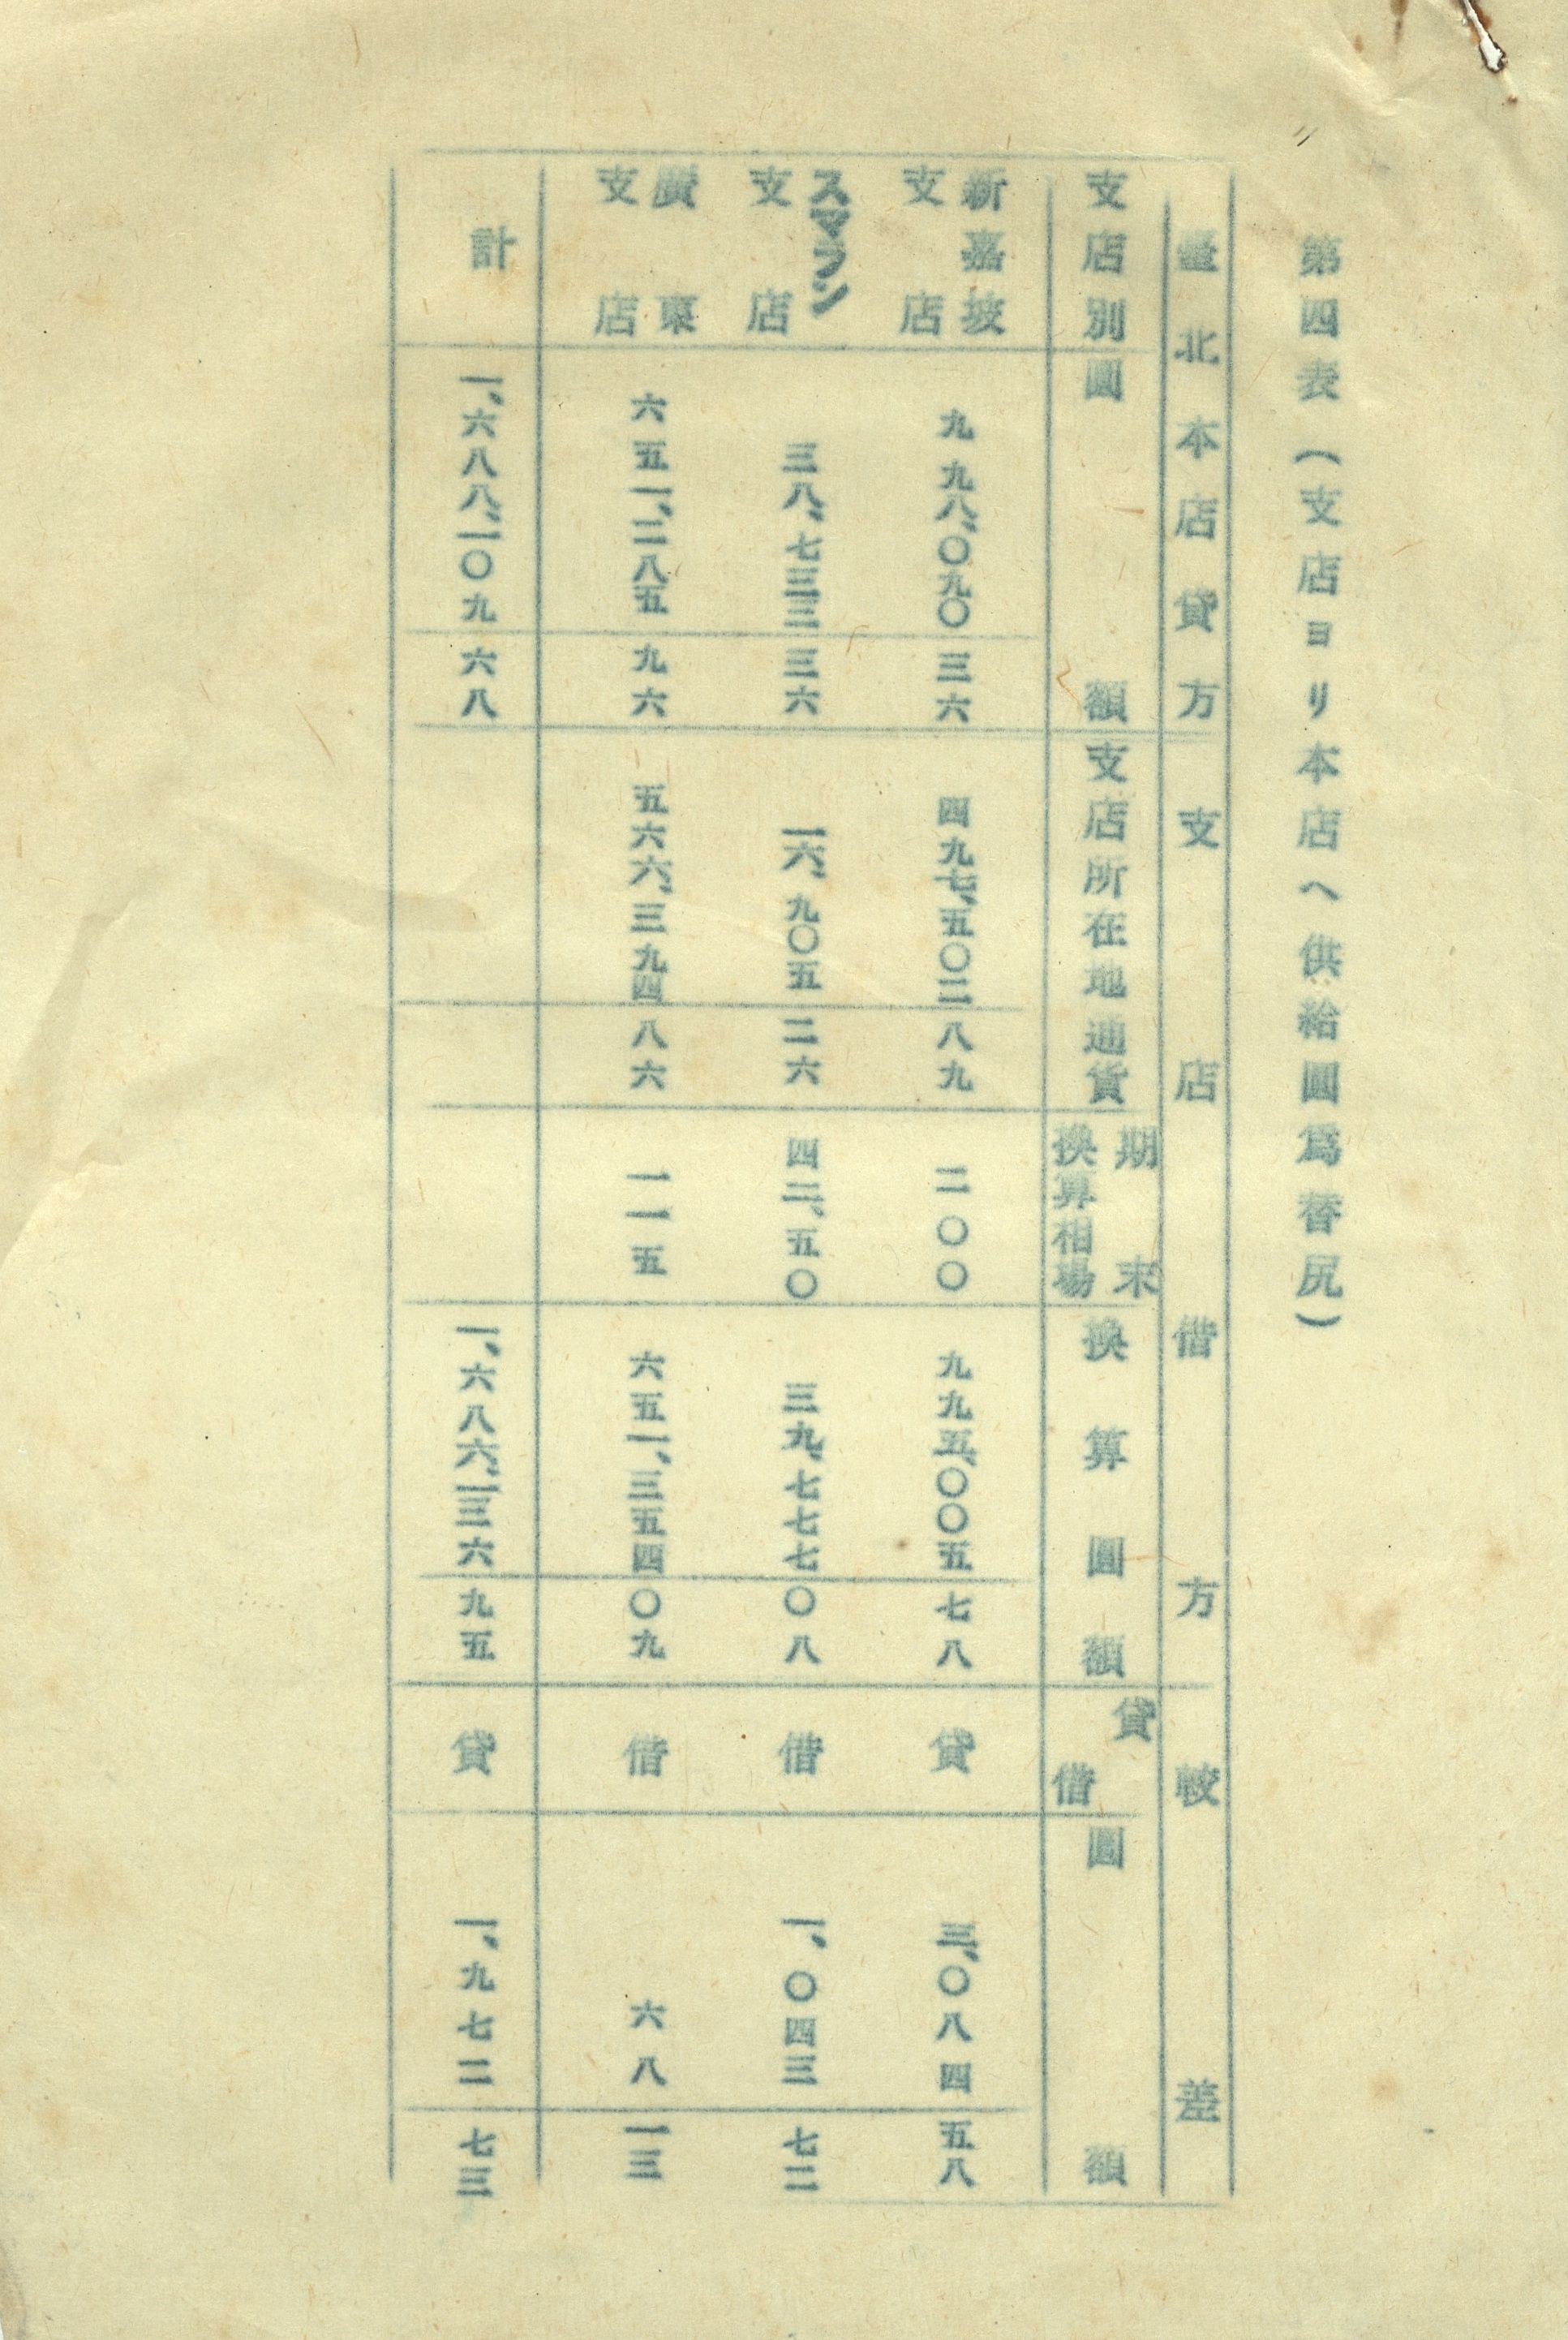 第四表(支店ヨリ本店へ供給圓爲替尻)
臺北本店貸方 支店借方 較差
支店別 圓額 支店所在地通貨 期末換算相場 換算圓額 貸借 圓額
新嘉坡支店 九九八、〇九〇 三六 四九七、五〇二 八九 二〇〇 九九五、〇〇五 七八 貸 三、〇八四 五八
スマラン支店 三八、七三三 三六 一六、九〇五 二六 四二、五〇 三九、七七七 〇八 借 一、〇四三 七二
廣東支店 六五一、二八五 九六 五六六、三九四 八六 一一五 六五一、三五四 〇九 借 六八 一三
計 一、六八八、一〇九 六八 一、六八六、一三六 九五 貸 一、九七二 七三